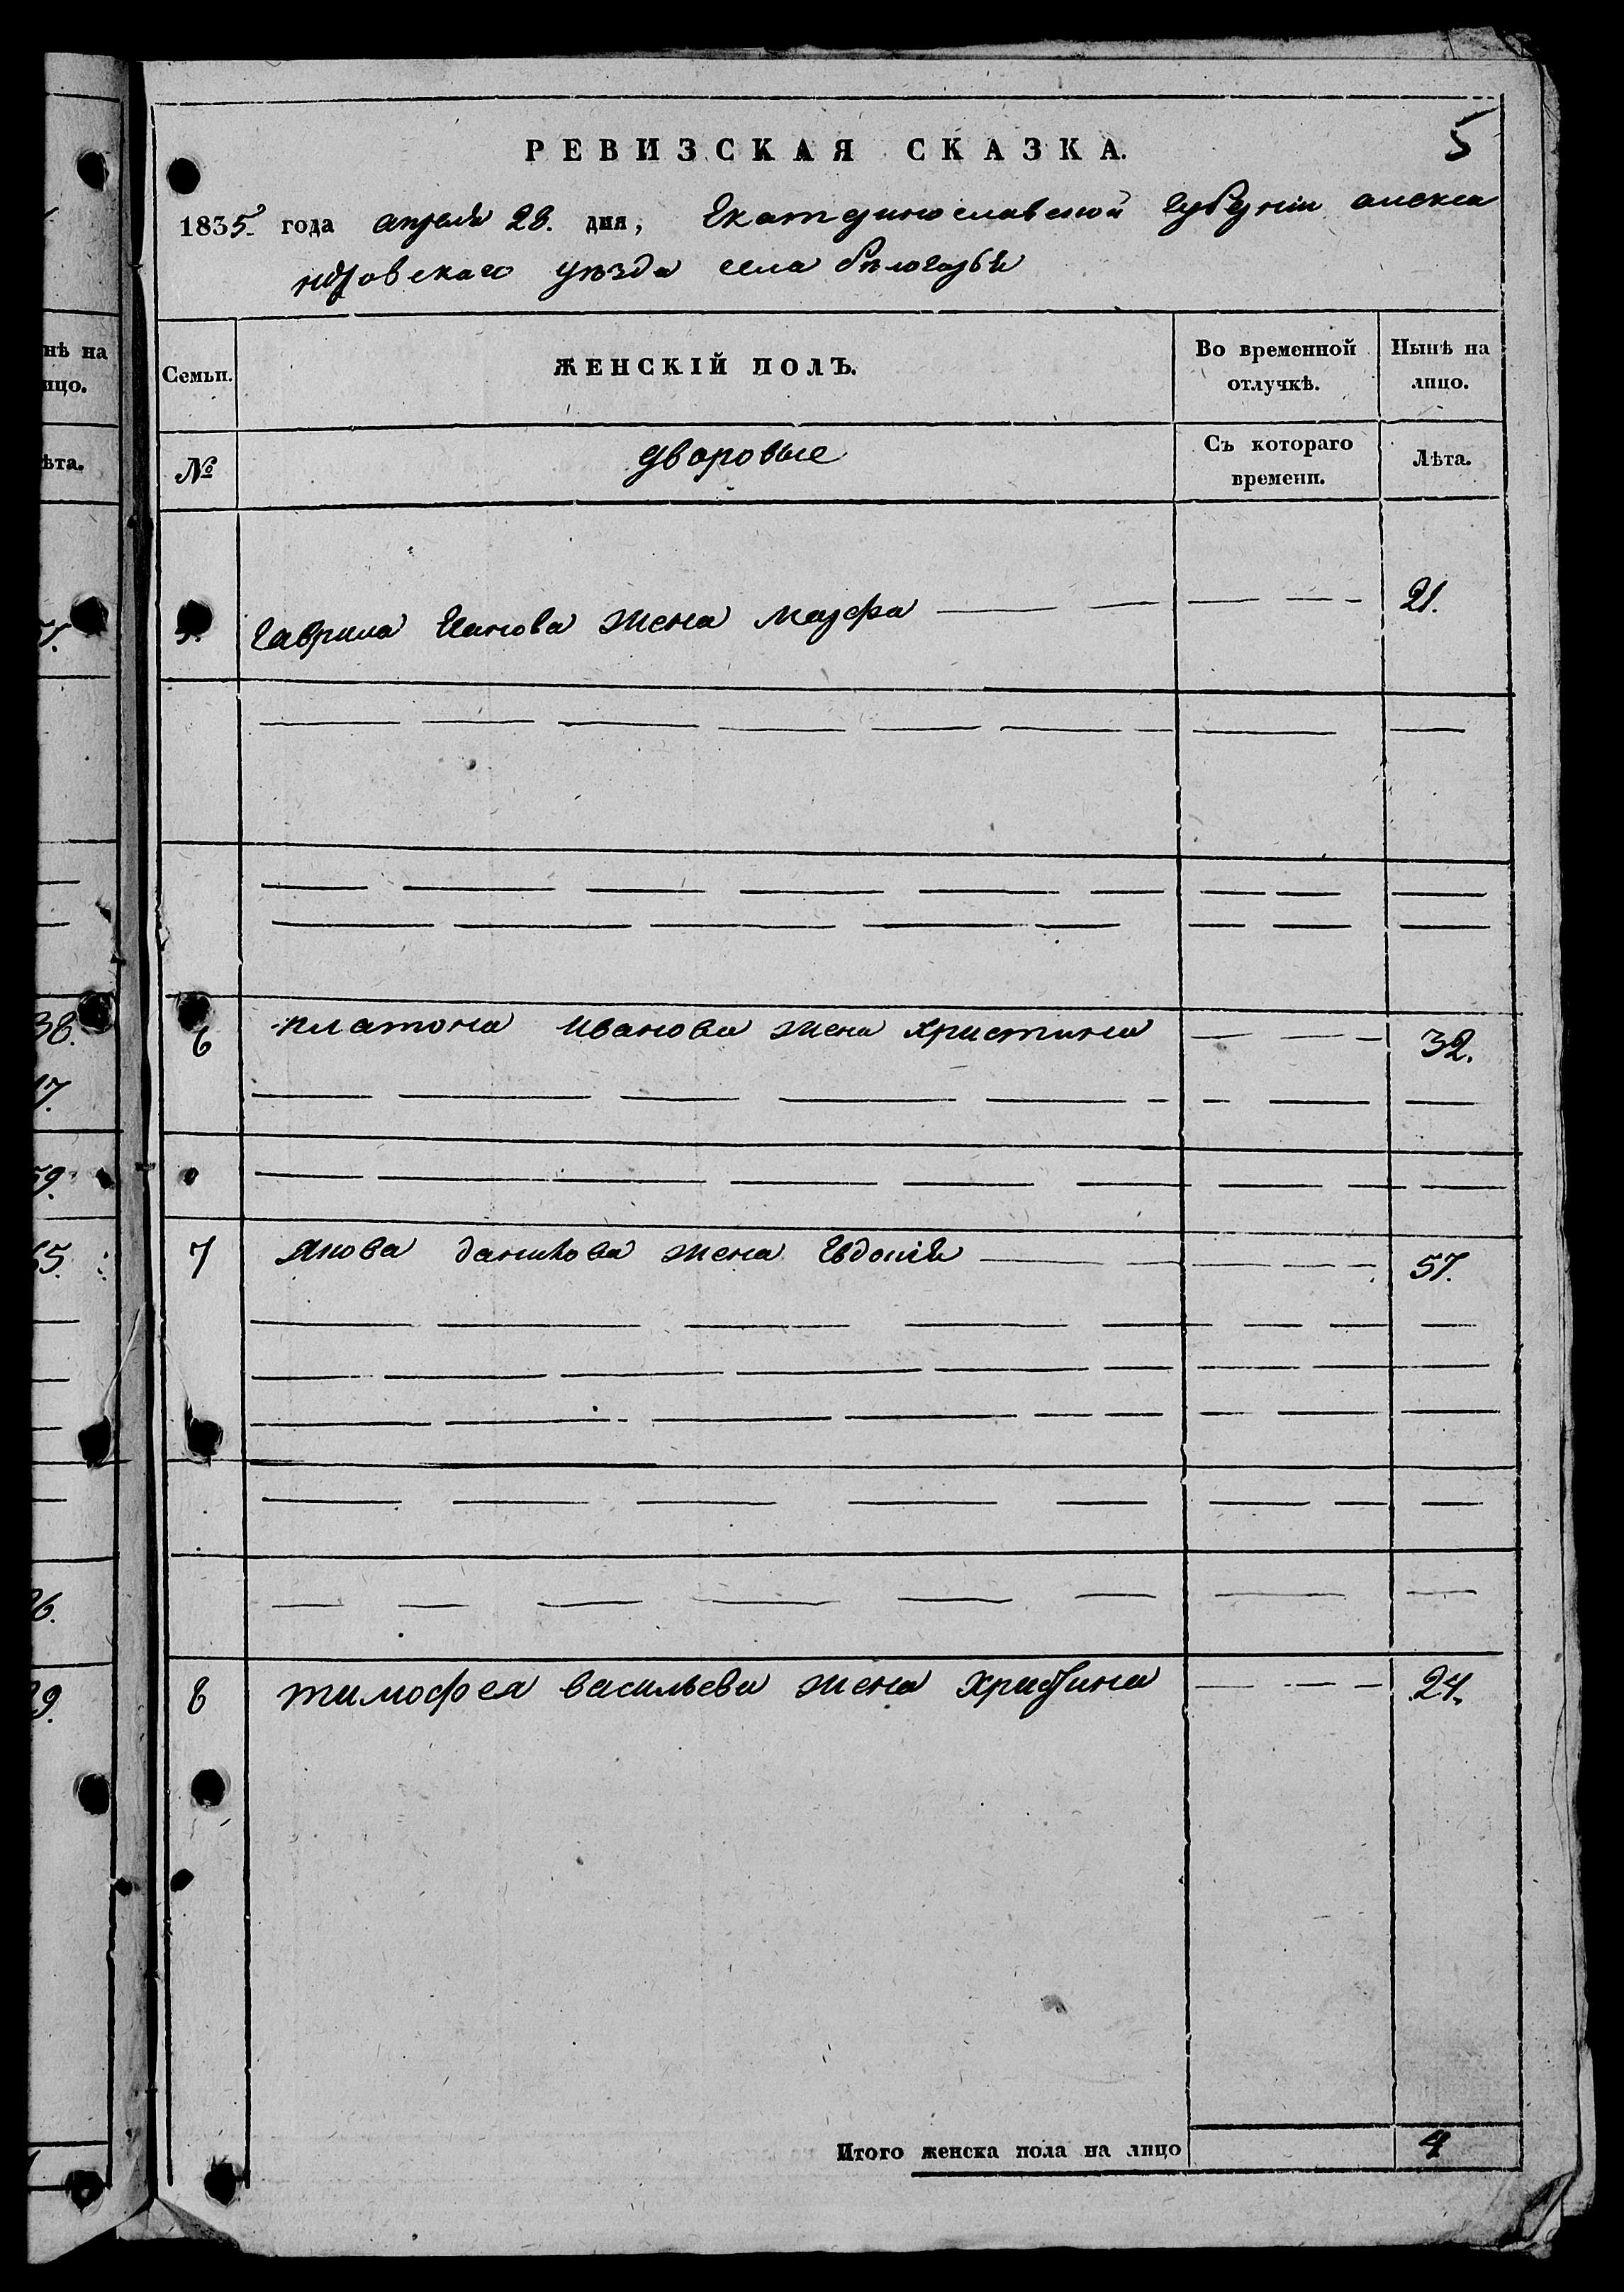 5
РЕВИЗСКАЯ СКАЗКА.
1835. года апреля 28. дня, Екатеринославской губерніи алекса
ндровскаго уезда села белогорья
Семьи. ЖЕНСКІЙ ПОЛЪ. Во временной отлучкѣ. Нынѣ на лицо.
№ дворовые Съ котораго времени. Лѣта.
5. Гаврила жена марфа 21.
6 платона иванова жена христина 32.
7 якова данилова жена Евдокія 57.
8 тимофея васильева жена христина 24.
Итого женска пола на лицо 4
нѣ на
ицо.
ѣта.
38.
17.
59.
65.